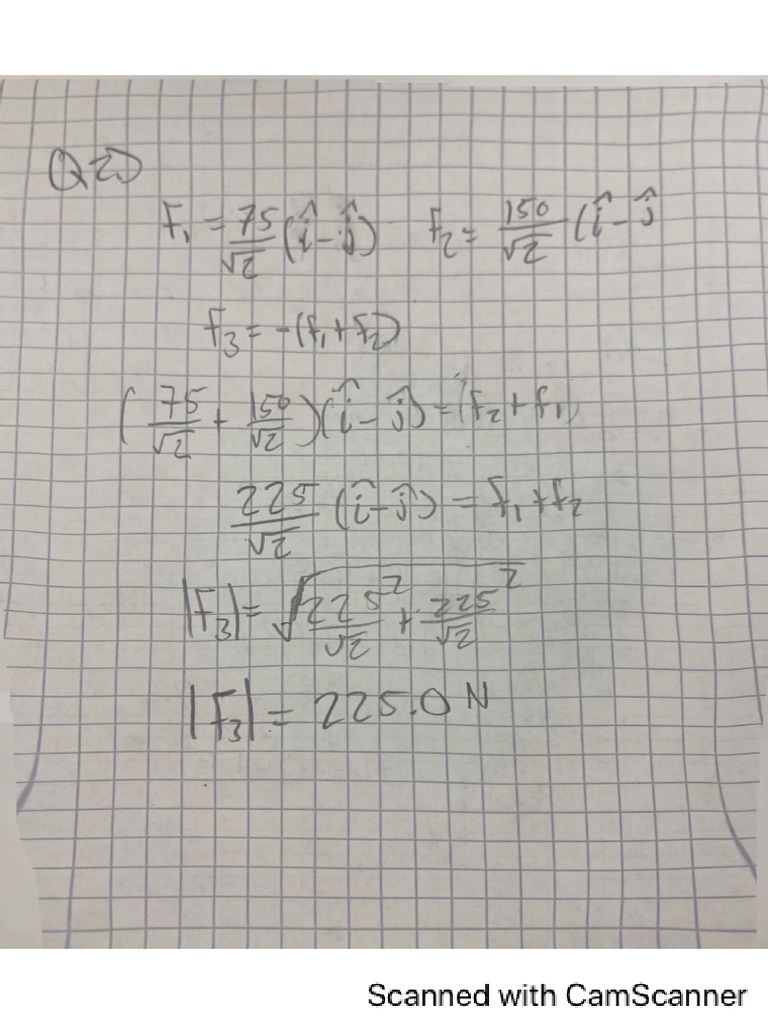 Q2)
F₁ = 75/√2 (î - ĵ) F₂ = 150/√2 (î - ĵ
F₃ = -(F₁ + F₂)
(75/√2 + 150/√2)(î - ĵ) = (F₂ + F₁)
225/√2 (î - ĵ) = F₁ + F₂
|F₃| = √(225²/√2 + 225²/√2)
|F₃| = 225.0 N
Scanned with CamScanner